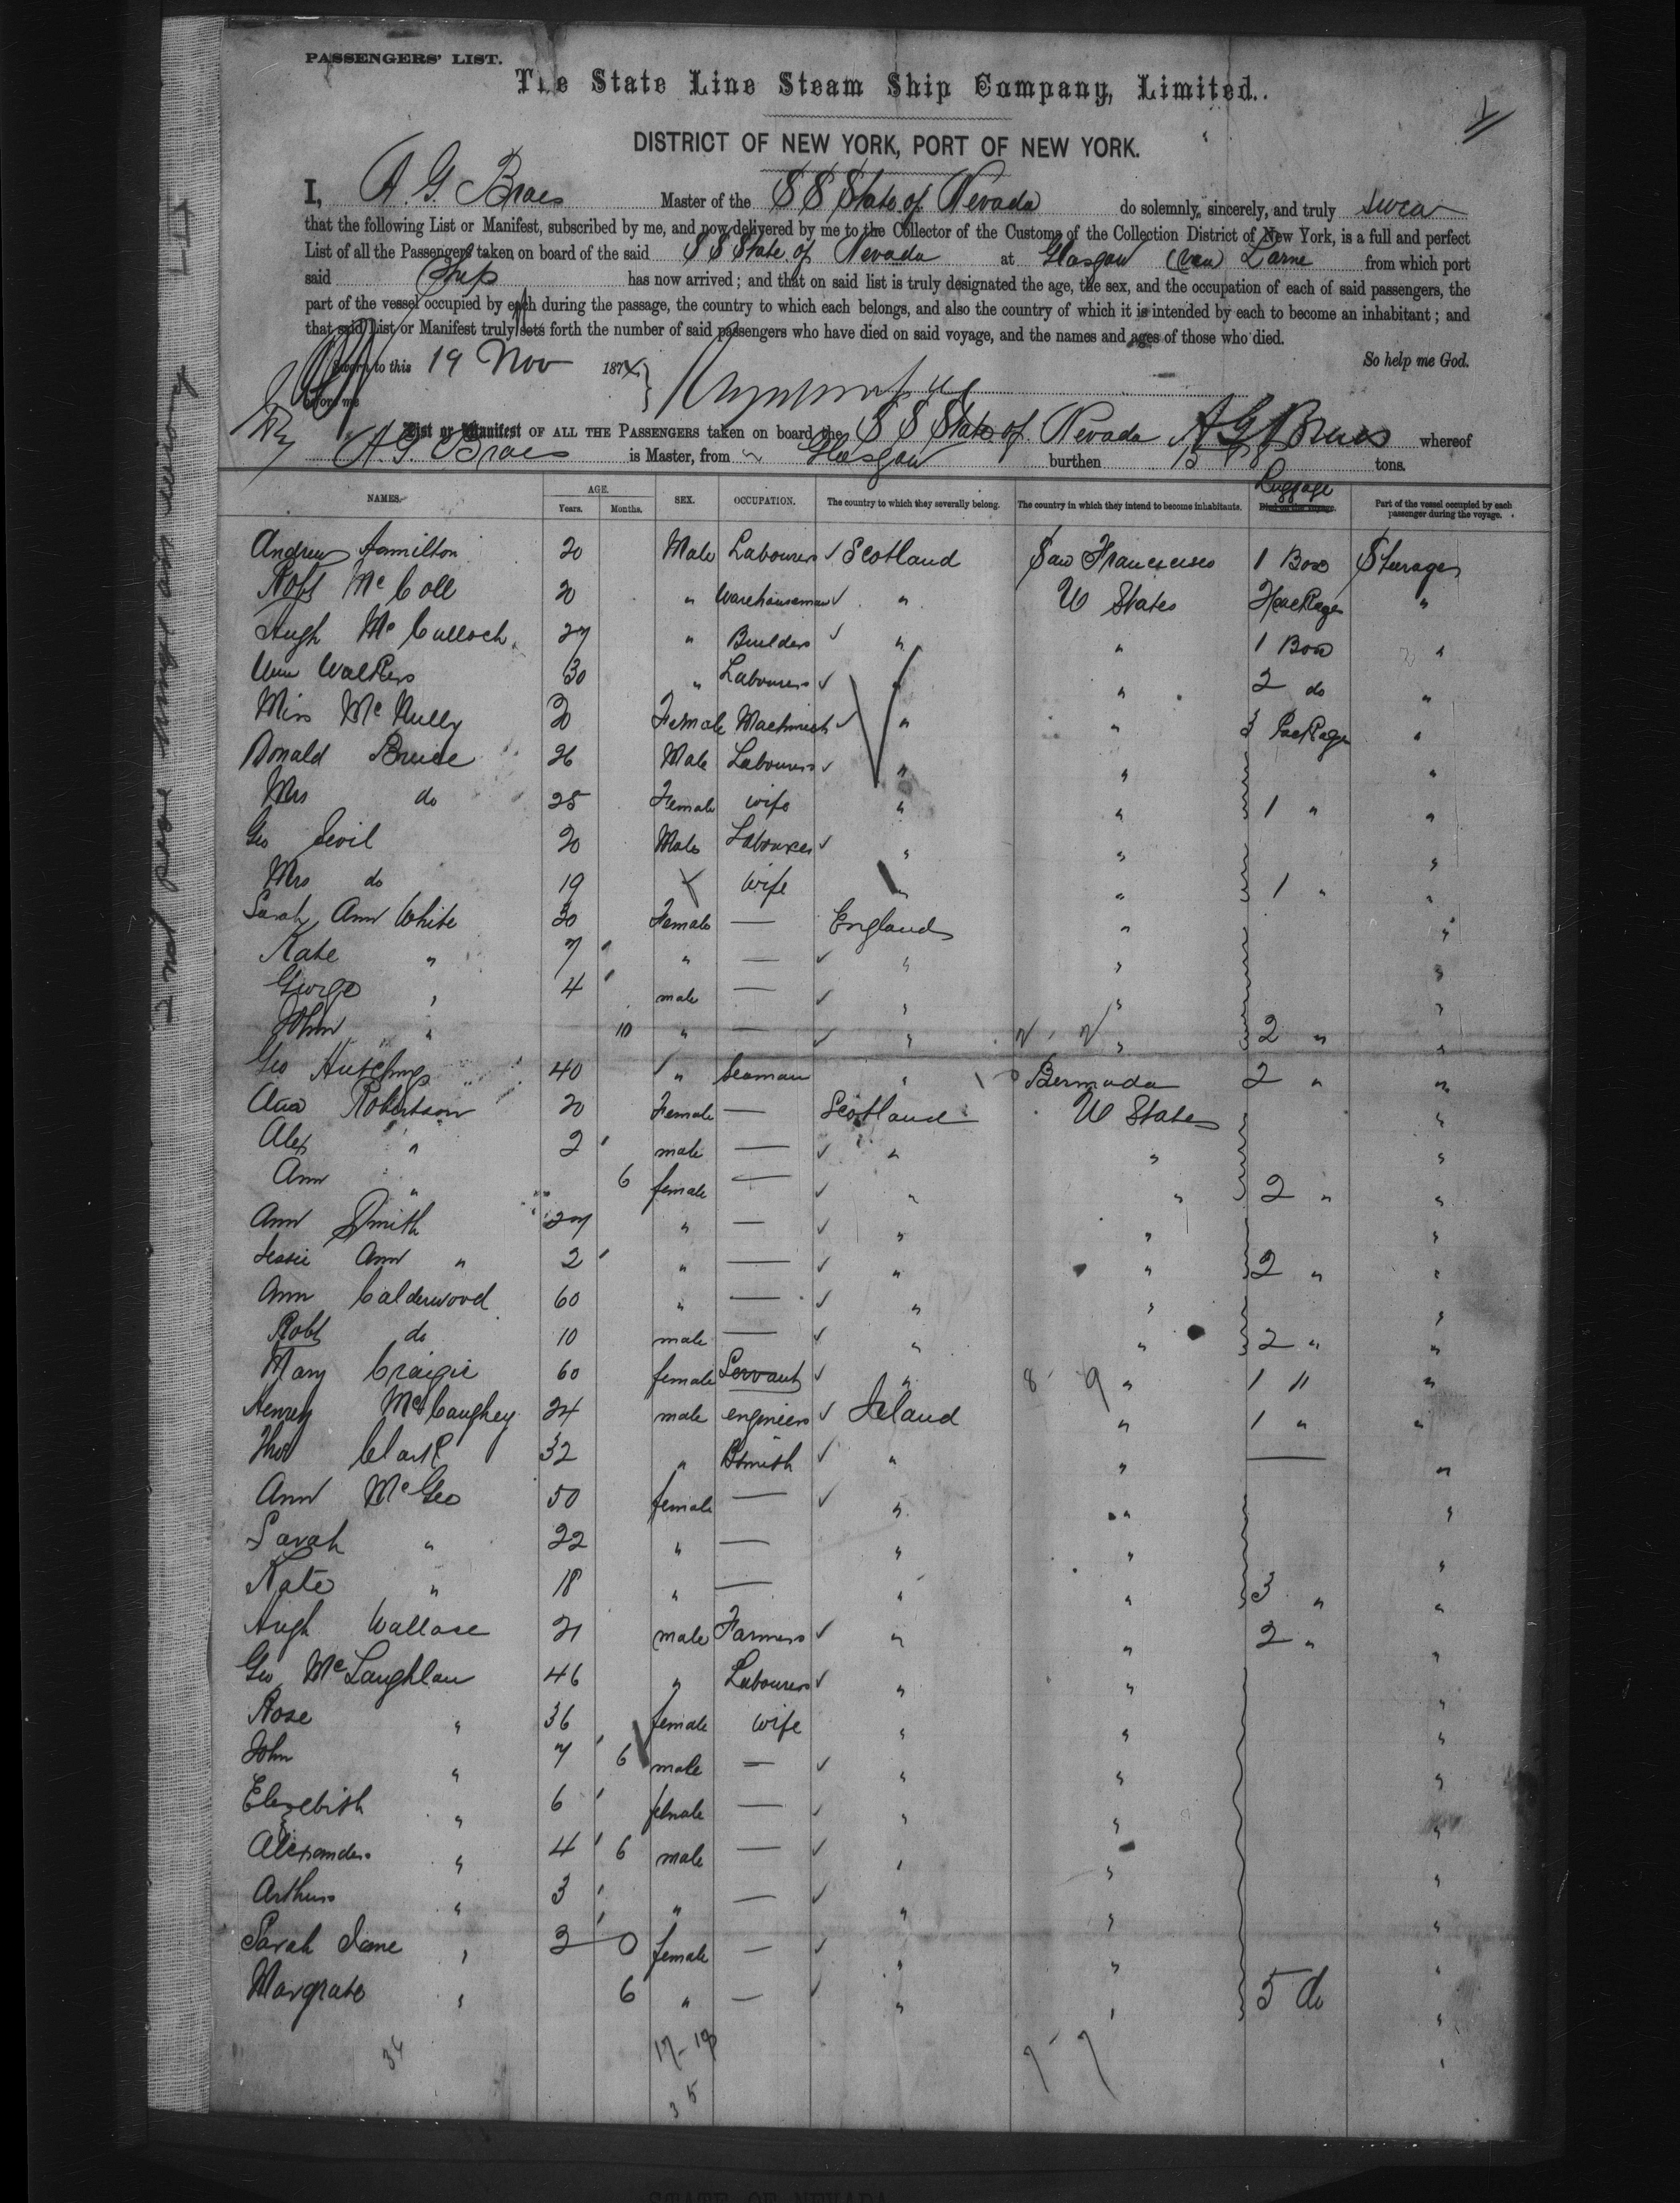 PASSENGERS' LIST.
The State Line Steam Ship Company, Limited.
DISTRICT OF NEW YORK, PORT OF NEW YORK.
I, A. G. Braes Master of the S S State of Nevada do solemnly, sincerely, and truly swear
that the following List or Manifest, subscribed by me, and now delivered by me to the Collector of the Customs of the Collection District of New York, is a full and perfect
List of all the Passengers taken on board of the said S S State of Nevada at Glasgow Larne from which port
said Ship has now arrived; and that on said list is truly designated the age, the sex, and the occupation of each of said passengers, the
part of the vessel occupied by each during the passage, the country to which each belongs, and also the country of which it is intended by each to become an inhabitant; and
that said List or Manifest truly sets forth the number of said passengers who have died on said voyage, and the names and ages of those who died.
So help me God.
Sworn to this 19 Nov 1874
before me
List or Manifest OF ALL THE PASSENGERS taken on board the S S State of Nevada A G Braes whereof
A. G. Braes is Master, from Glasgow burthen tons.
NAMES. AGE. Years. Months. SEX. OCCUPATION. The country to which they severally belong. The country in which they intend to become inhabitants. Luggage Part of the vessel occupied by each passenger during the voyage.
Andrew Hamilton 20 Male Labourer Scotland San Francisco 1 Box Steerage
Robt McColl 20 " Warehouseman " U States 2 Packages "
Hugh McCulloch 27 " Builder " " 1 Box "
Wm Walker 30 " Labourer " " 2 do "
Miss McNully 20 Female Machinist " " 3 Package "
Donald Bruce 26 Male Labourer " " "
Mrs do 25 Female wife " " 1 " "
Geo 20 Male Labourer " " "
Mrs do 19 wife " " 1 " "
Sarah Ann White 30 Female — England " "
Kate " 7 " — " " "
George " 4 male — " " "
John " 10 " — " " 2 " "
Geo Hutchings 40 " Seaman " Bermuda 2 " "
Robertson 20 Female — Scotland U States "
Alex " 2 male — " " "
Ann " 6 female — " " 2 " "
Ann Smith 27 " — " " "
Jessie Ann " 2 " — " " 2 " "
Ann Calderwood 60 " — " " "
Robt do 10 male — " " 2 " "
Mary Craigie 60 female Servant " " 1 " "
Henry McCaughey 24 male engineer Ireland " 1 " "
Thos Clark 32 " Bsmith " " — "
Ann McGeo 50 female — " " "
Sarah " 22 " — " " "
Kate " 18 " — " " 3 " "
Hugh Wallace 21 male Farmer " " 2 " "
Geo McLaughlan 46 " Labourer " " "
Rose " 36 female wife " " "
John " 7 6 male — " " "
Elezebith " 6 female — " " "
Alexander " 4 6 male — " " "
Arthur " 3 " — " " "
Sarah Jane " 2 0 female — " " "
Margrate " 6 " — " " 5 do "
34
17-18
35